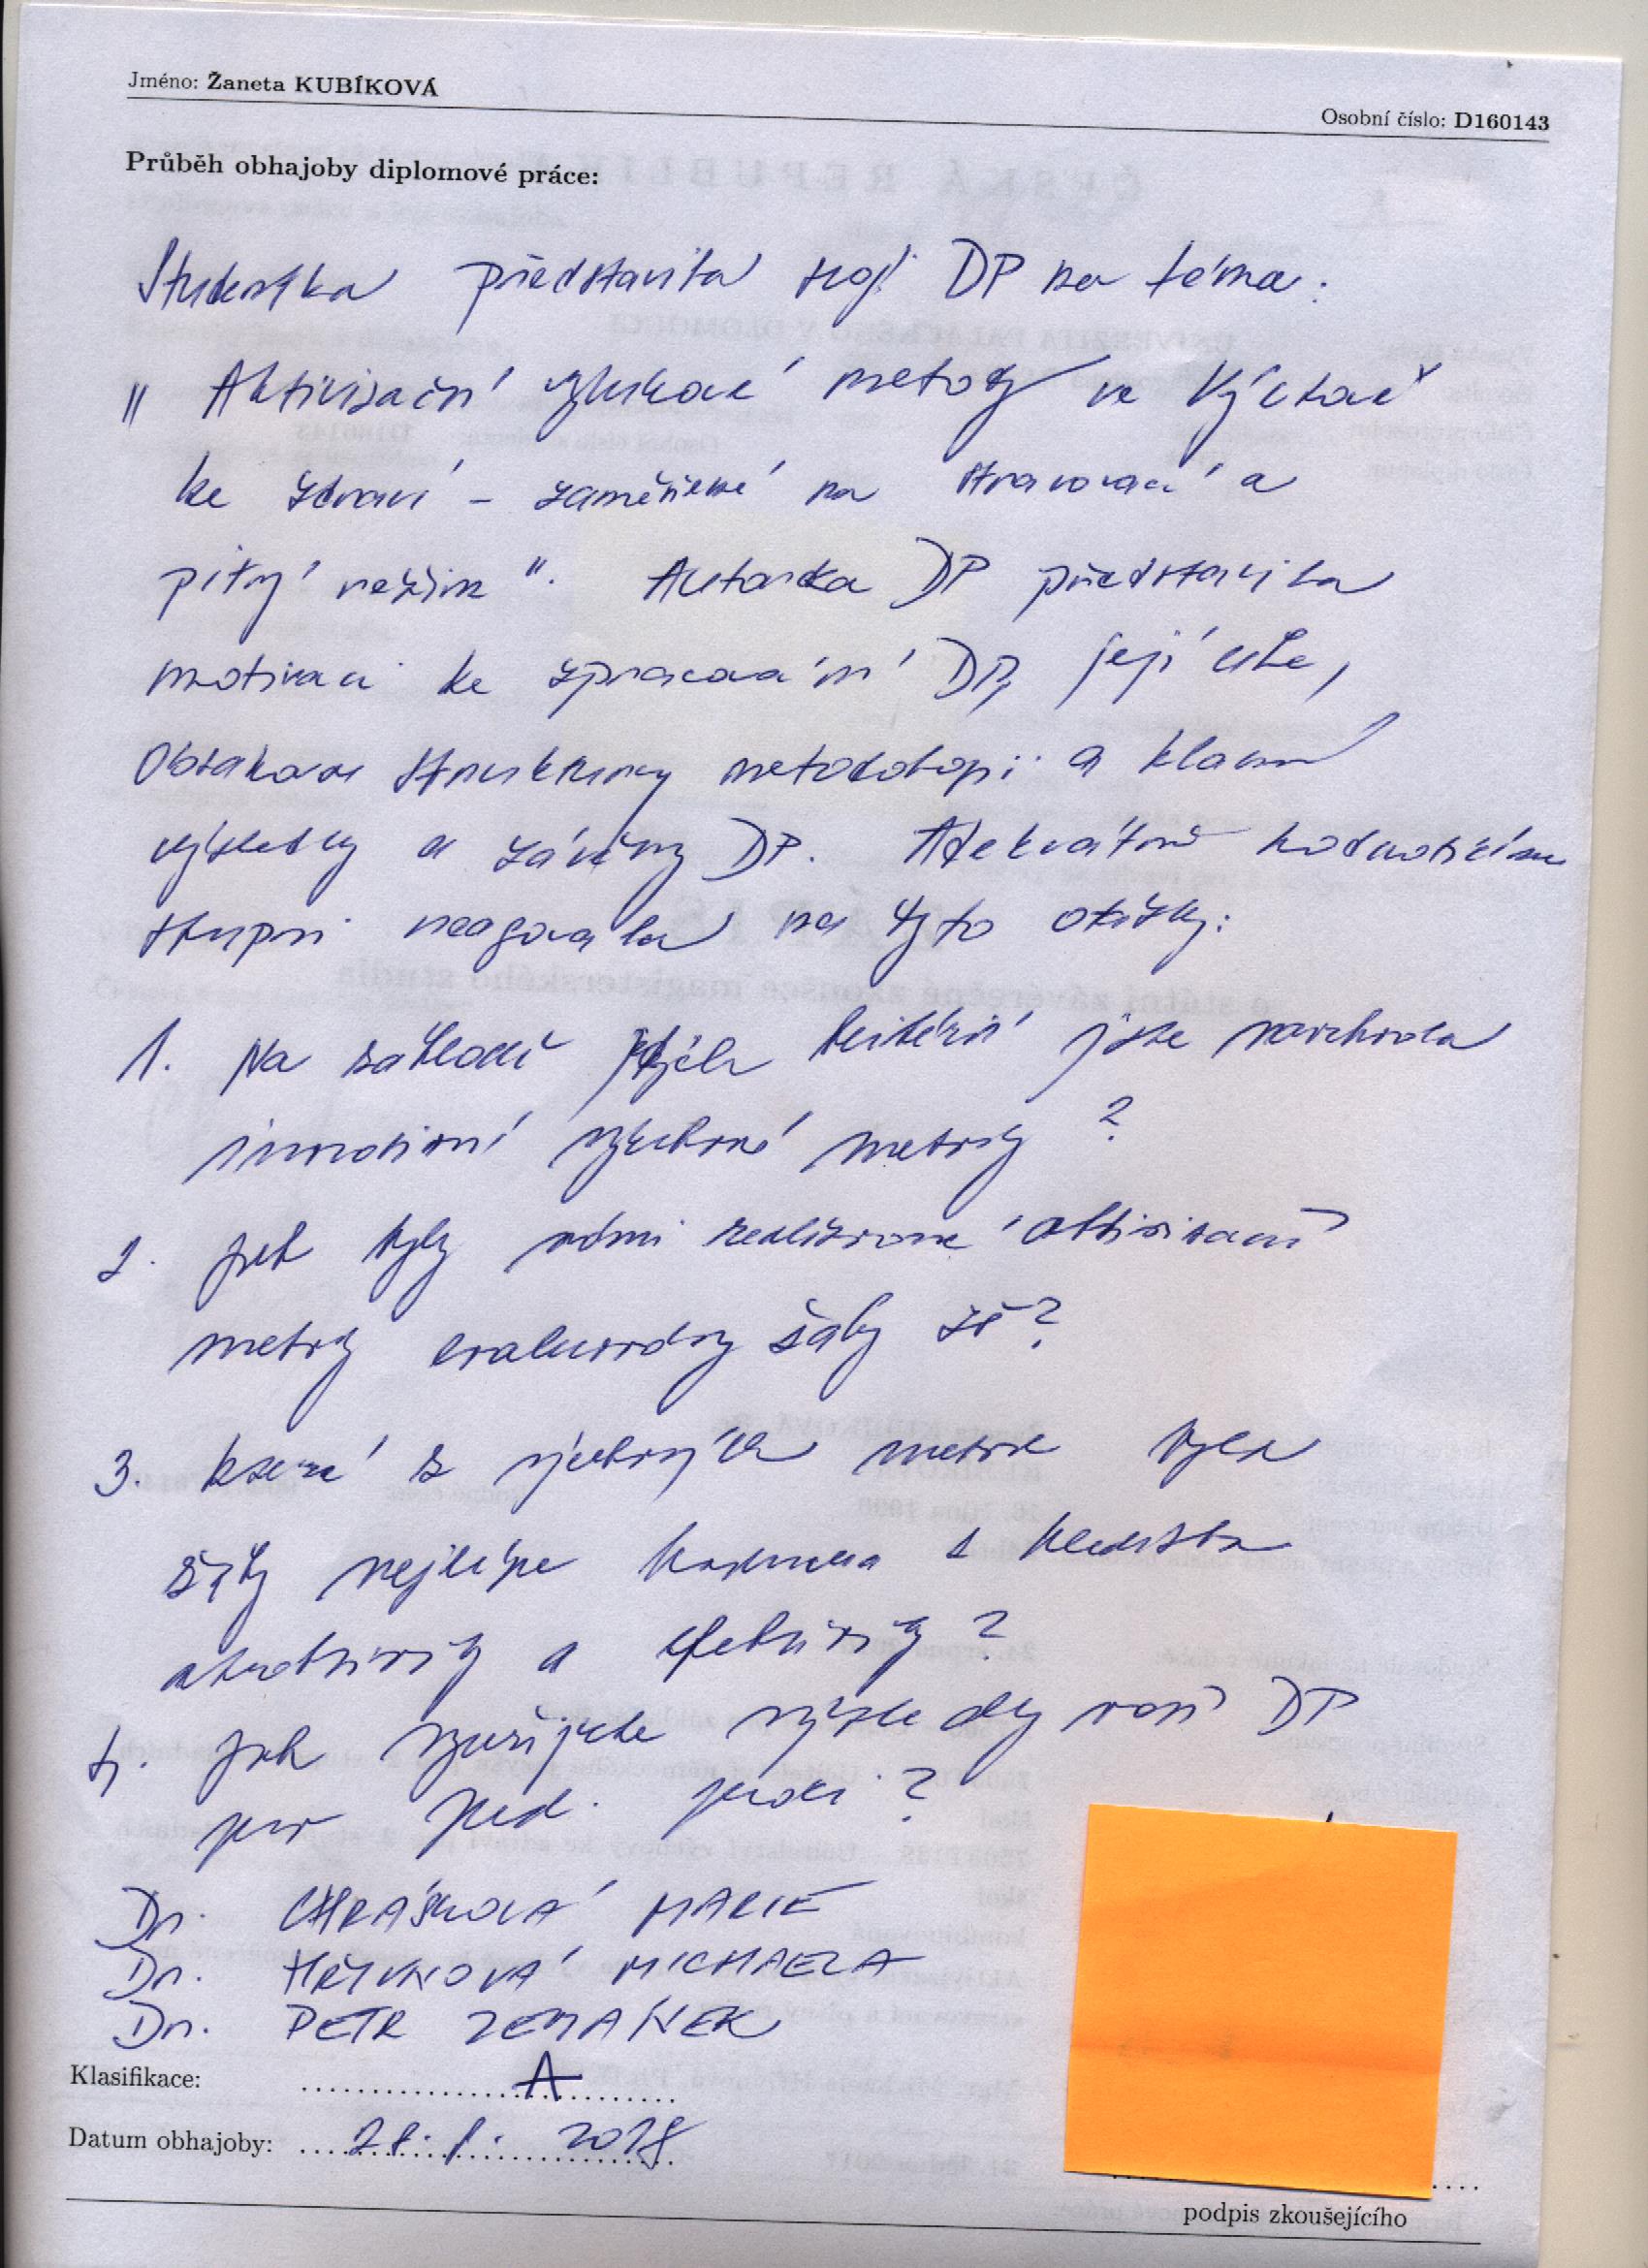 Jméno: Žaneta KUBÍKOVÁ
Osobní číslo: D160143
Průběh obhajoby diplomové práce:
Studentka představila svoji DP na téma:
„Aktivizační výukové metody ve Výchově
ke zdraví – zaměřené na stravovací a
pitný režim". Autorka DP představila
motivaci ke zpracování DP, její cíle,
obsahovou strukturu, metodologii a hlavní
výsledky a závěry DP. Adekvátně hodnotícím
skupin reagovala na tyto otázky:
1. Na základě jakých kritérií jste navrhovala
inovativní výukové metody?
2. Jak byly vámi realizované aktivizační
metody evaluovány žáky ZŠ?
3. Která z výukových metod byla
žáky nejlépe hodnocena z hlediska
atraktivity a efektivity?
4. Jak využijete výsledky vaší DP
pro ped. praxi?
Dr. CHRÁSKOVÁ MARIE
Dr. HŘIVNOVÁ MICHAELA
Dr. PETR ZEMÁNEK
Klasifikace: A
Datum obhajoby: 2018
podpis zkoušejícího